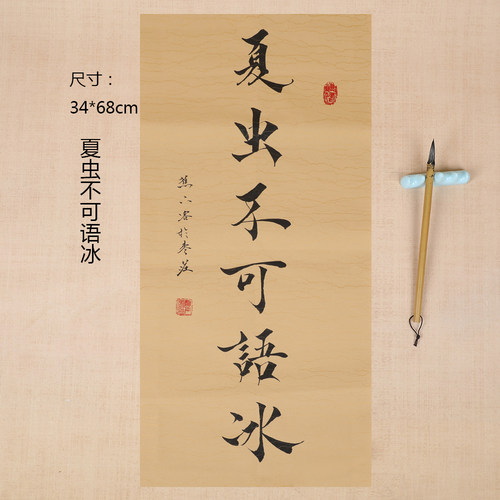 尺寸：
34*68cm
夏虫不可语冰
夏虫不可語冰